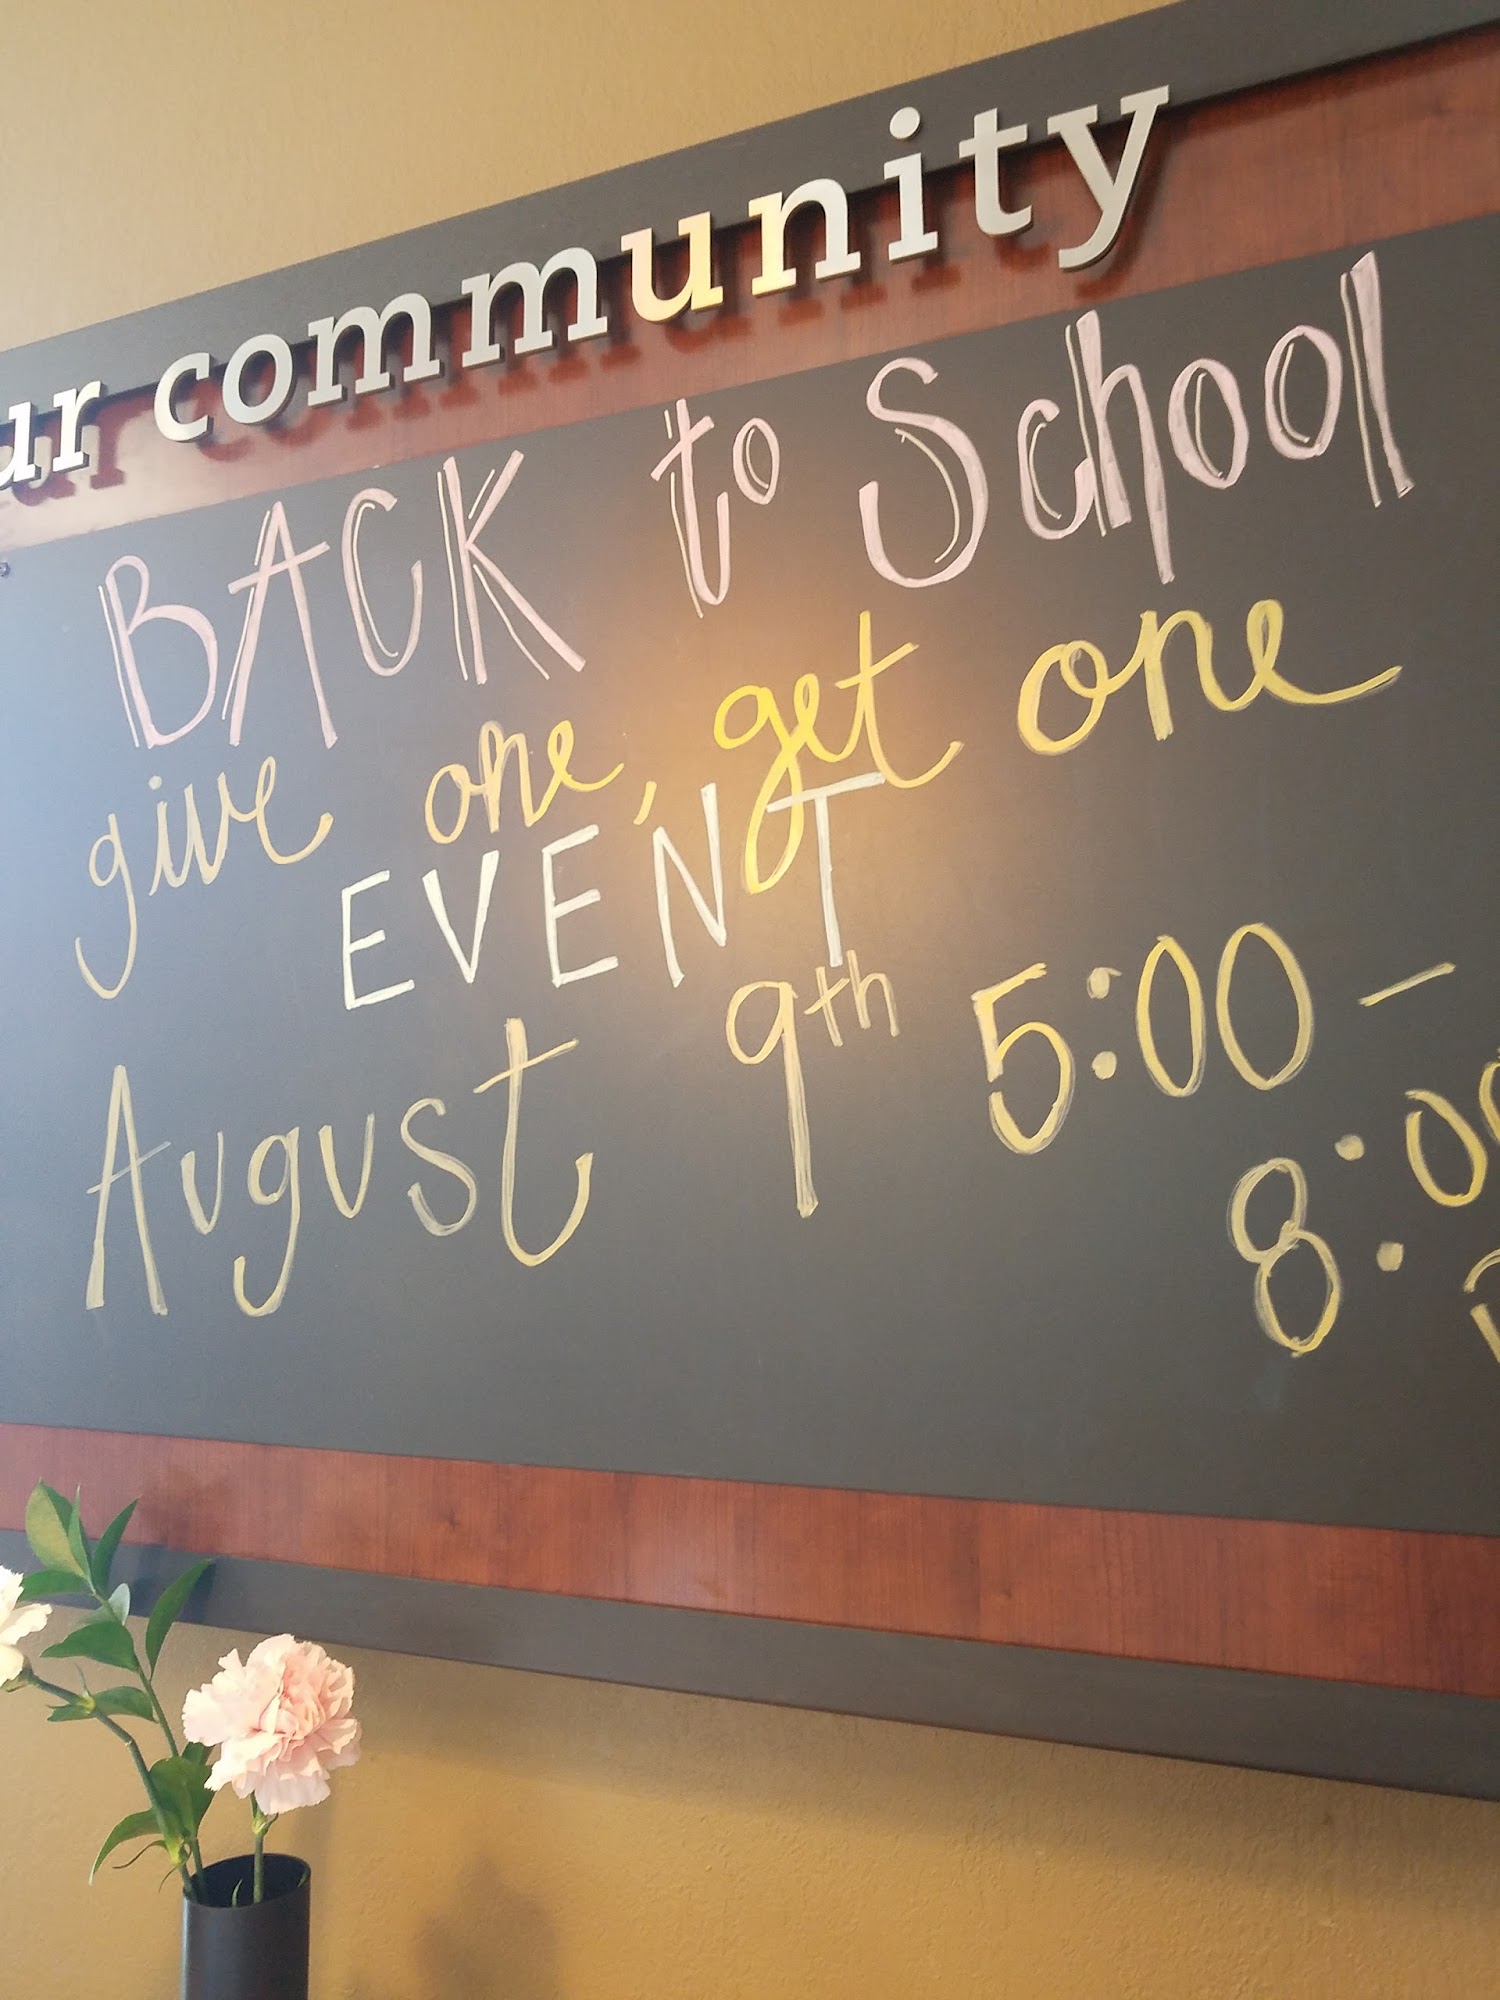 community
BACK to School
give one, get one
EVENT
August 9th 5:00 –
8:00